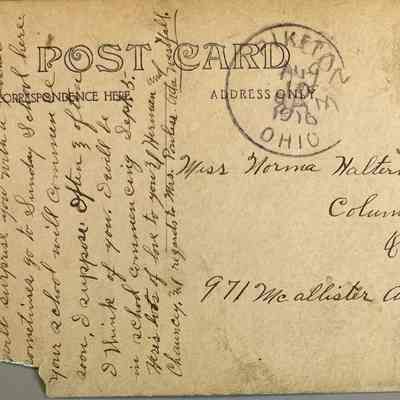 POST CARD
CORRESPONDENCE HERE
ADDRESS ONLY
PIKETON
AUG
1910
OHIO
Miss Norma Halter
Colum
O
971 McAllister A
will surprise you with a
sometimes go to Sunday School here.
your school will commence
soon, I suppose. Often I
I think of you. I will be
in school commencing Sept. 5.
Here's lots of love to you & Herman &
Chauncey, & regards to Mrs. Pauline